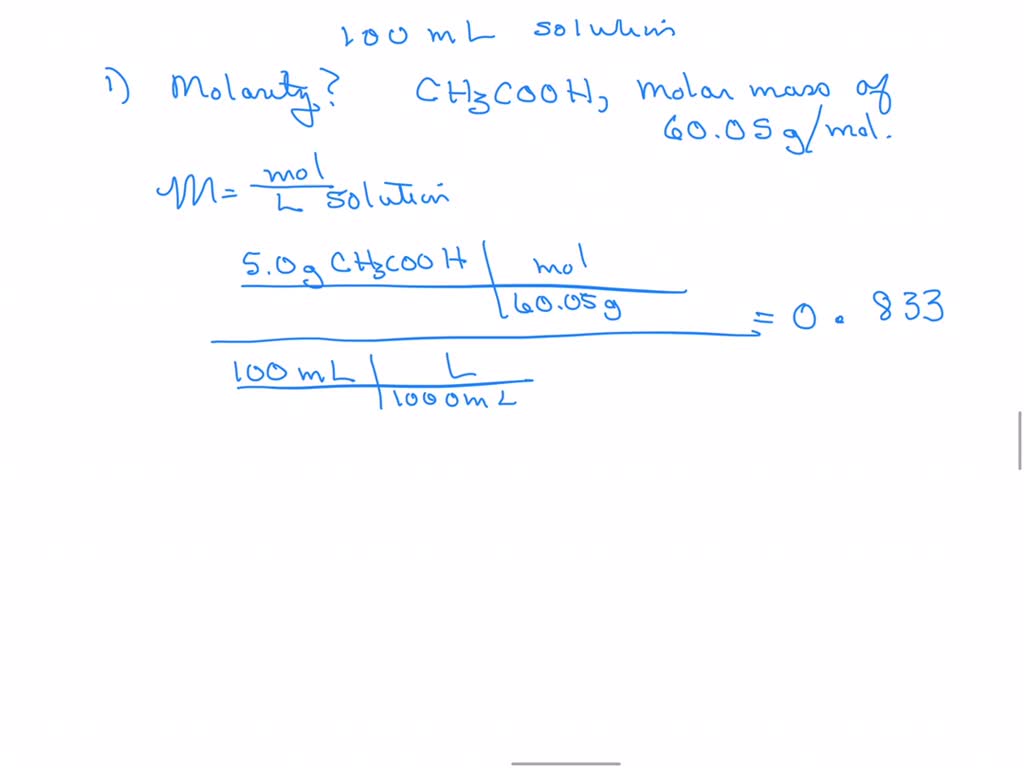 100 mL solution
1) Molarity? CH3COOH, molar mass of
60.05 g/mol.
M = mol
L solution
5.0g CH3COOH | mol
60.05g
= 0.833
100 mL | L
1000 mL